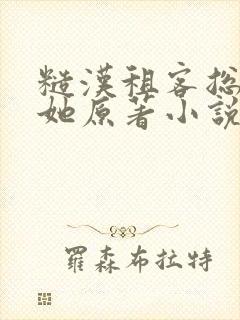 糙漢租客総
她原著小說
羅森布拉特